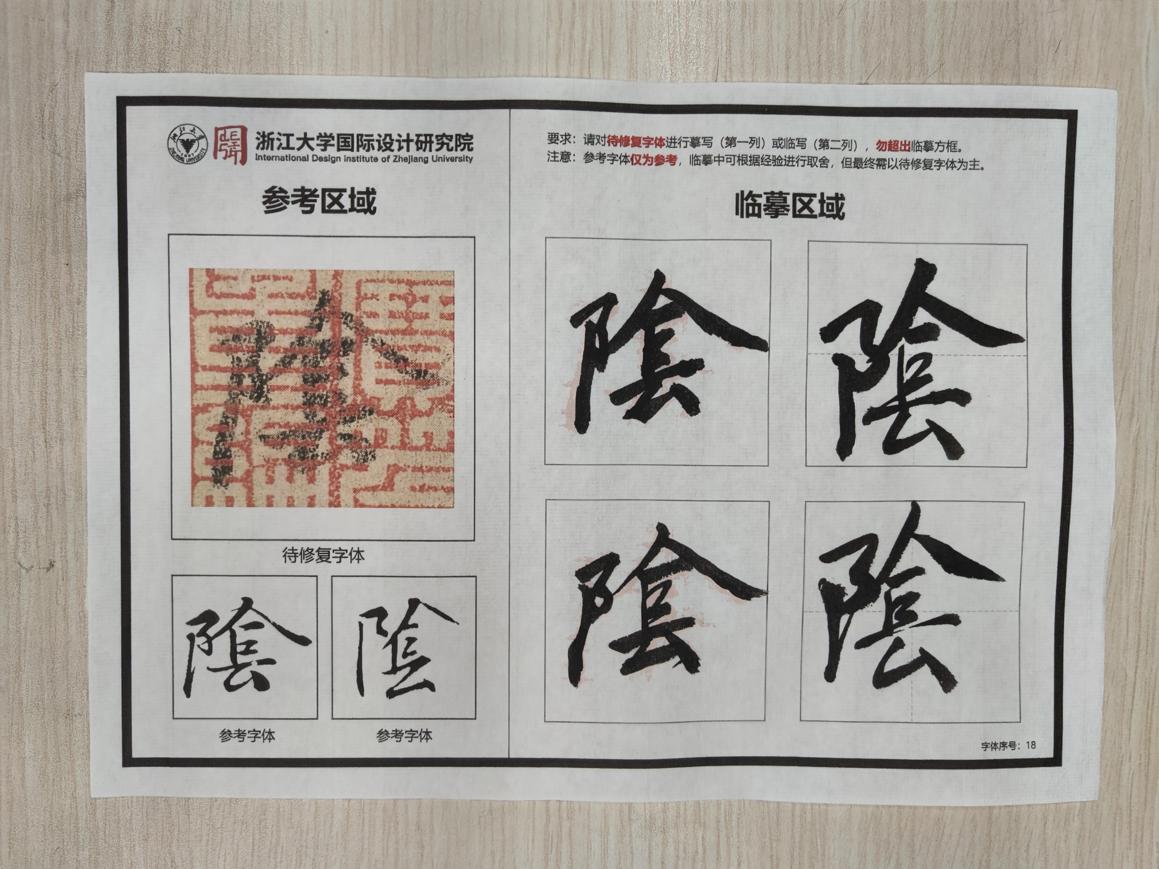 浙江大学国际设计研究院
International Design Institute of Zhejiang University
参考区域
陰
待修复字体
陰
陰
参考字体
参考字体
要求：请对待修复字体进行摹写（第一列）或临写（第二列），勿超出临摹方框。
注意：参考字体仅为参考，临摹中可根据经验进行取舍，但最终需以待修复字体为主。
临摹区域
陰
陰
陰
陰
字体序号：18